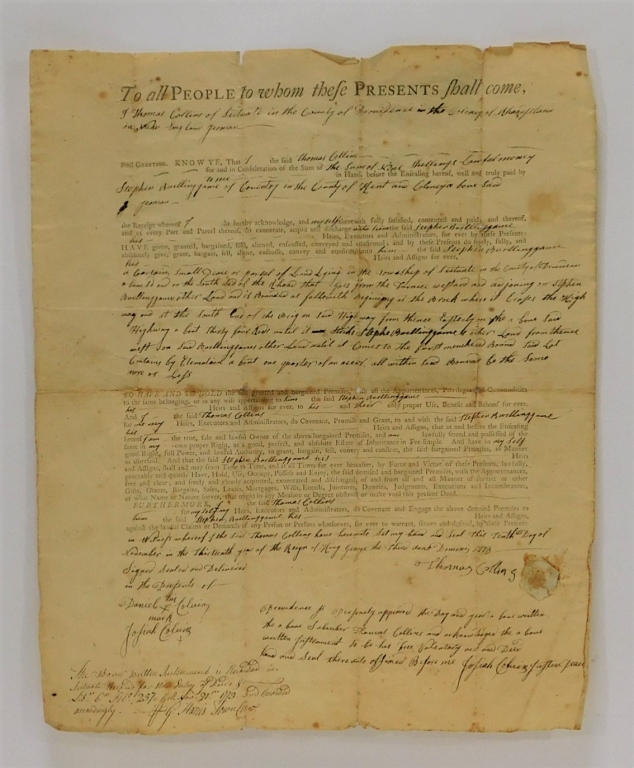 To all PEOPLE to whom these PRESENTS shall come,
I Thomas Collins of Scituate in the County of Providence in the Colony of Rhoad Island
in New England yeoman
send GREETING. KNOW YE, That I the said Thomas Collins
for and in Consideration of the Sum of the Sum of Shillings Lawful money
to me in Hand, before the Ensealing hereof, well and truly paid by
Stephen of Coventry in the County of Kent and Coloney a bove Said
yeoman
the Receipt whereof I do hereby acknowledge, and my self therewith fully satisfied, contented and paid; and thereof,
and of every Part and Parcel thereof, do exonerate, acquit and discharge the said Stephen
his Heirs, Executors and Administrators, for ever by these Presents:
HAVE given, granted, bargained, sold, aliened, enfeoffed, conveyed and confirmed; and by these Presents do freely, fully, and
absolutely give, grant, bargain, sell, aliene, enfeoffe, convey and confirm unto him the said Stephen
his Heirs and Assigns for ever,
a Certain Small Piece or parsel of Land Lying in the Township of Scituate in the County of Providence
a bove Said on the South Side of the Rhoad that from the furnace westward and on Stephen
other Land and is Bounded as followeth is the Brook where it Cross the High
way at the South End of the Said Highway from thence Easterly on the a bove Said
Highway a bout thirty four Rod until it Strikes Stephen other Land from thence
west on Said other Land until it Comes to the first mentioned Bound Said Lot
Contains by a bout one quarter of an acer, all within Said Bounds be the Same
more or Less
TO HAVE AND TO HOLD the said granted and bargained Premises, with all the Appurtenances, Privileges and Commodities
to the same belonging, or in any wise appertaining to him the said Stephen
his Heirs and Assigns for ever, to his and their only proper Use, Benefit and Behoof for ever.
And I the said Thomas Collins
for me my Heirs, Executors and Administrators, do Covenant, Promise and Grant, to and with the said Stephen
his Heirs and Assigns, that at and before the Ensealing
hereof I am the true, sole and lawful Owner of the above bargained Premises, and am lawfully seized and possessed of the
same in my own proper Right, as a good, perfect, and absolute Estate of Inheritance in Fee Simple. And have in my Self
good Right, full Power, and lawful Authority, to grant, bargain, sell, convey and confirm, the said bargained Premises, in Manner
as aforesaid. And that the said Stephen his Heirs
and Assigns, shall and may from Time to Time, and at all Times for ever hereafter, by Force and Virtue of these Presents, lawfully,
peaceably and quietly Have, Hold, Use, Occupy, Possess and Enjoy, the said demised and bargained Premises, with the Appurtenances,
free and clear, and freely and clearly acquitted, exonerated and discharged, of and from all and all Manner of former or other
Gifts, Grants, Bargains, Sales, Leases, Mortgages, Wills, Entails, Jointures, Dowries, Judgments, Executions and Incumbrances,
of what Name or Nature soever, that might in any Measure or Degree obstruct or make void this present Deed.
FURTHERMORE, I the said Thomas Collins
for my self my Heirs, Executors and Administrators, do Covenant and Engage the above demised Premises to
him the said Stephen his Heirs and Assigns,
against the lawful Claims or Demands of any Person or Persons whatsoever, for ever to warrant, secure and defend, by these Presents.
in Witness whereof I the Said Thomas Collins have hereunto Set my hand and Seal this Tenth Day of
November in the Thirteenth year of the Reign of King George the third
Signed Sealed and Delivered
in the Presents of
Thomas Collins
Daniel
mark
Josiah
Providence ss Personaly appeared the Day and year a bove written
the a bove Thomas Collins and acknowledged the a bove
written Instrument to be his free Voluntary act and Deed
hand and Seal thereunto Before me Josiah Justice peace
The Above written Instrument is Recorded in
Scituate
accordingly Town